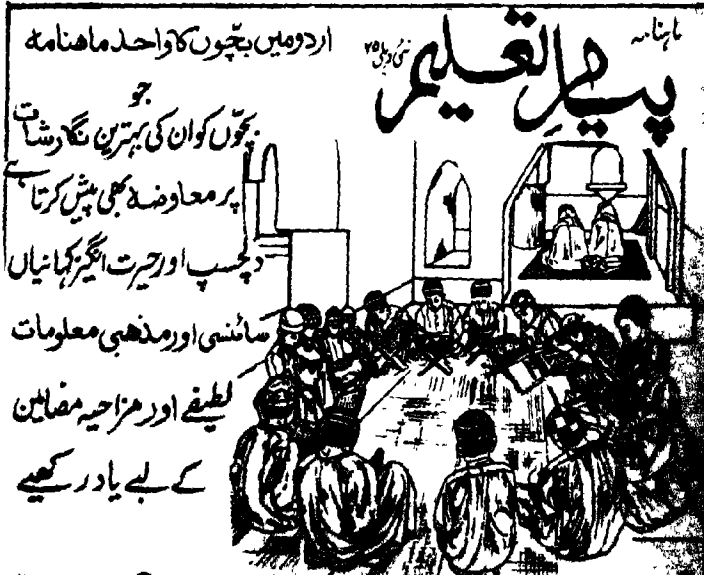 ماہنامہ
پیامِ تعلیم
نئی دہلی ۲۵
اردو میں بچّوں کا واحد ماھنامه
جو
بچّوں کو ان کی بہترین نگارشات
پر معاوضہ بھی پیش کرتا ہے
دلچسپ اور حیرت انگیز کہانیاں
سائنسی اور مذہبی معلومات
لطیفے اور مزاحیہ مضامین
کے لیے یاد رکھیے